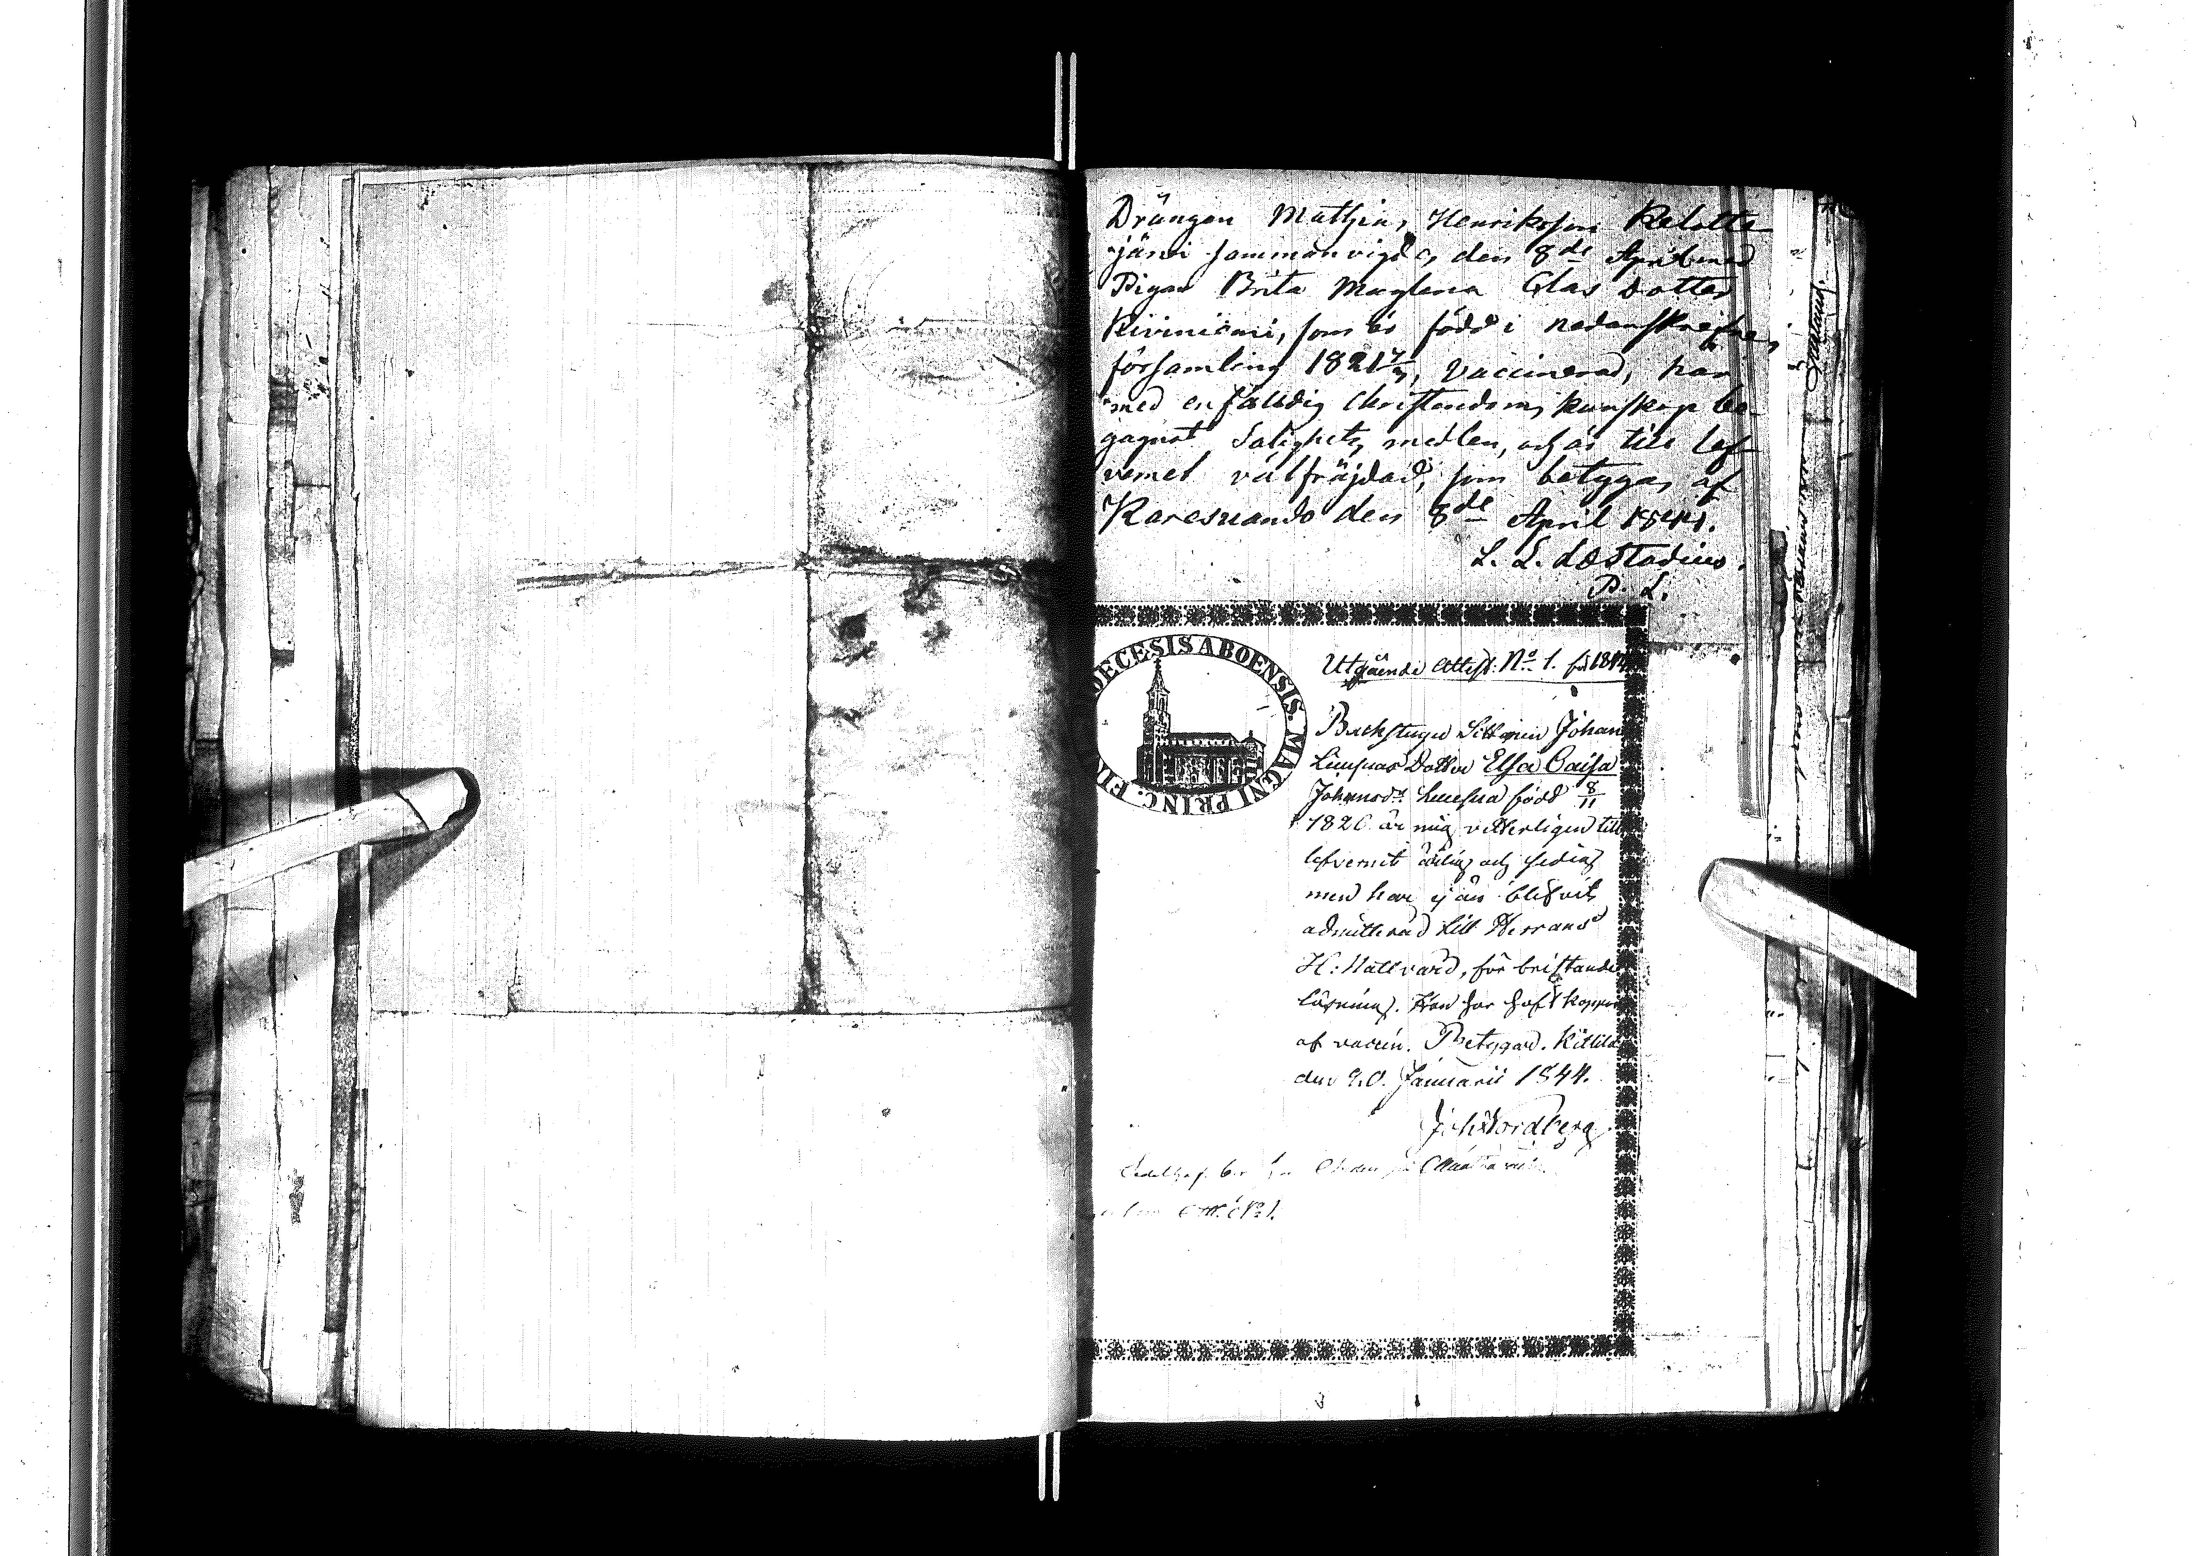 Drängen Mathias Henriksson Kelotte
järvi sammanvigdes den 8de April med
Pigan Brita Maglena Clas Dotter
Kiiniemi, som är född i nedanskrefne
församling 1821, vaccinerad, har
med enfaldig Christendoms kunskap be-
gagnat Salighets medlen, och är till lef-
vernet välfräjdad, som betygas af
Karesuando den 8de April 1844.
L. L. Læstadius.
P. L.
DIOECESIS ABOENSIS. MAGNI PRINC. FIN
Utgående Attest. No 1. för 1844
Backstugu Sittaren Johan
Dotter Elsa Caisa
Johansdr född 8/11
1826 är mig vetterligen till
lefvernet ärlig och sedig
men har ej än blifvit
admitterad till Herrans
H: Nattvard, för bristande
läsning. Hon har haft koppor
af vaccin. Betygad. Kittilä
den 20. Januarii 1844.
Joh Nordberg
No 1.